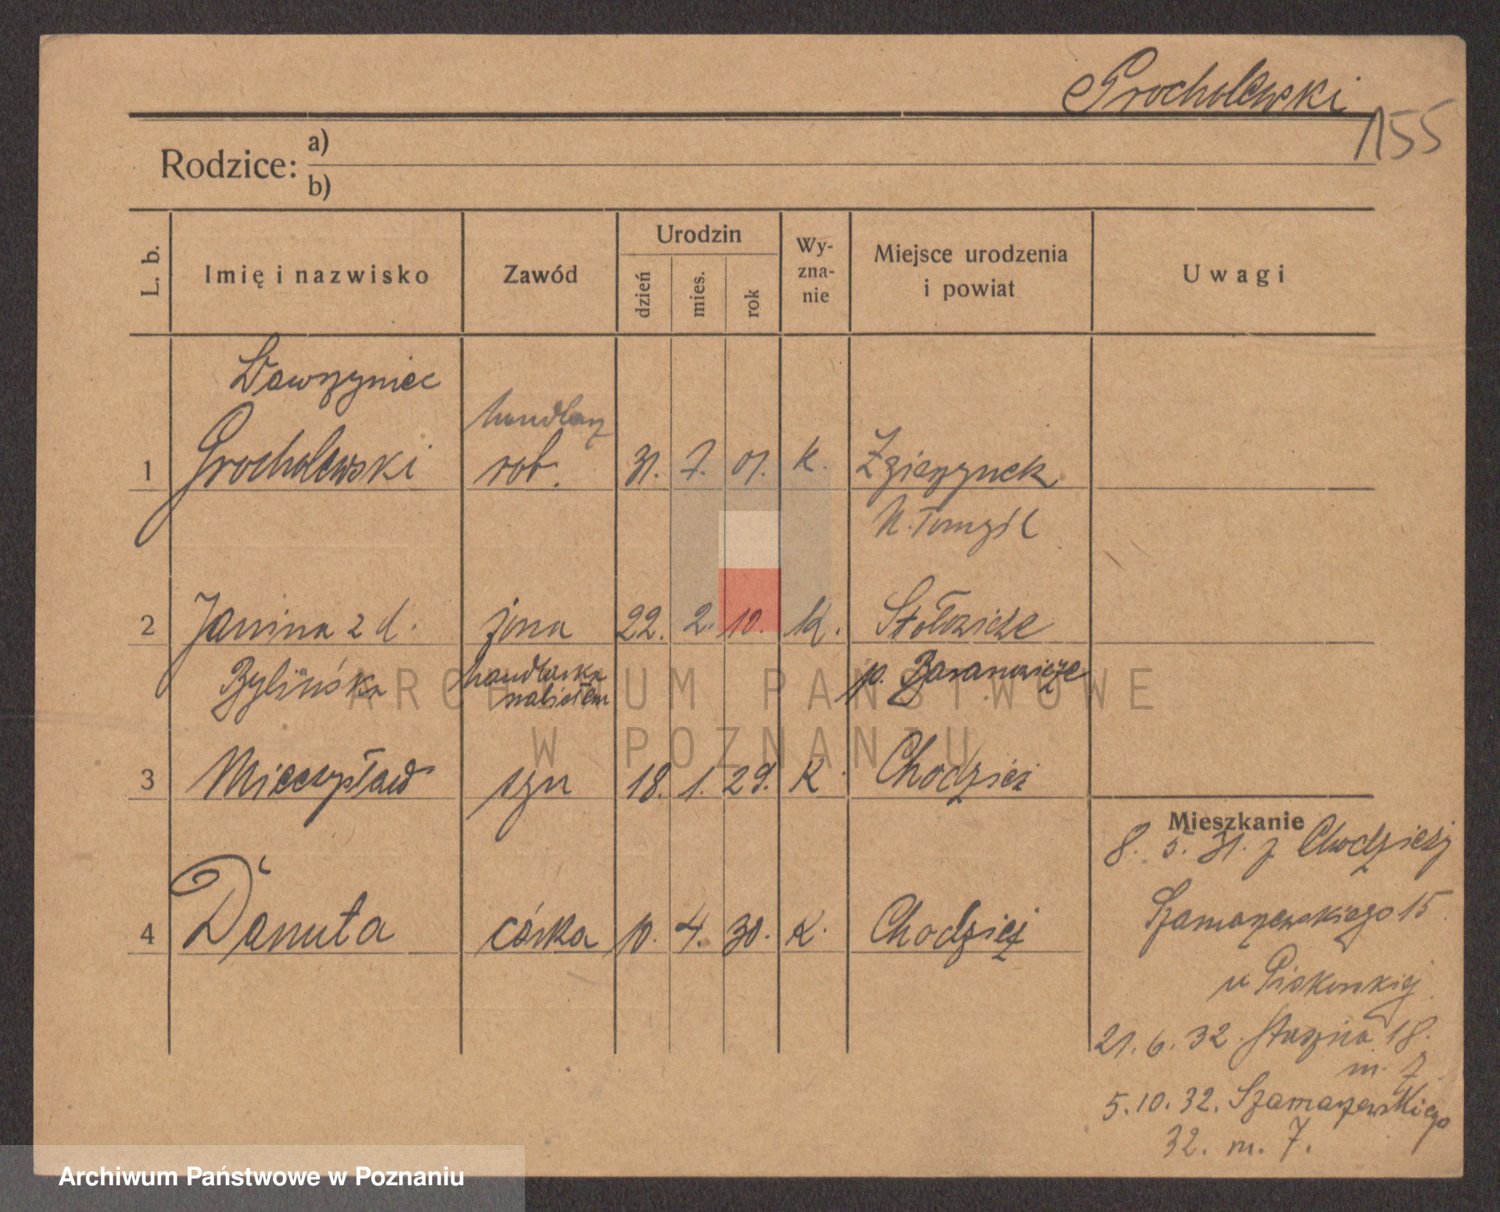 Grocholewski
155
Rodzice: a)
b)
L. b.
Imię i nazwisko
Zawód
Urodzin
dzień
mies.
rok
Wy-
zna-
nie
Miejsce urodzenia
i powiat
Uwagi
Wawrzyniec
handlarz
1 Grocholewski rob. 31. 7. 01. K. Zgierzynek
N. Tomyśl
2 Janina z d. żona 22. 2. 10. K. Stołowicze
Bylińska handlarka p. Baranowicze
nabiałem
3 Mieczysław syn 18. 1. 29. K. Chodzież
Mieszkanie
8. 5. 31. z Chodzieży
4 Danuta córka 10. 4. 30. K. Chodzież
Szamarzewskiego 15
u
21. 6. 32. 18.
m. 7
5.10.32. Szamarzewskiego
32. m. 7.
ARCHIWUM PAŃSTWOWE
W POZNANIU
Archiwum Państwowe w Poznaniu